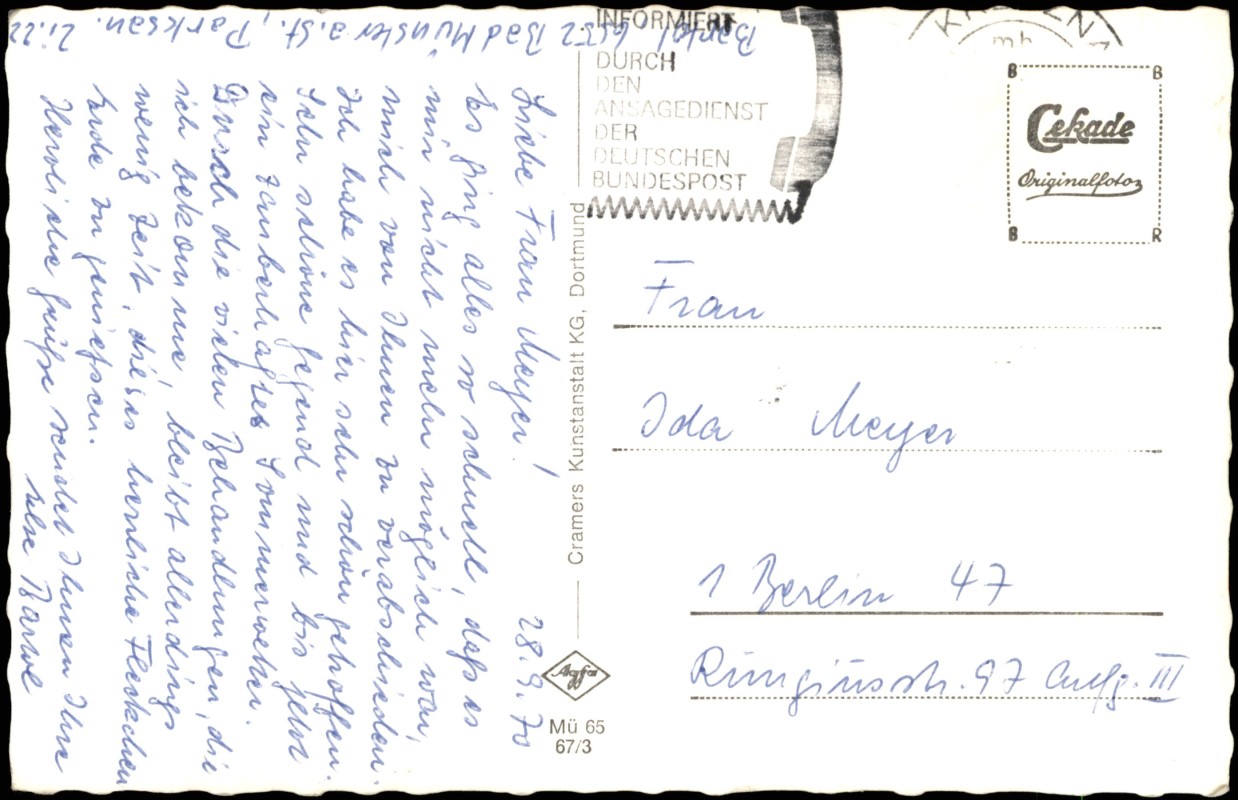 Liebe Frau Meyer! 28.9.70
Es ging alles so schnell, daß es
mir nicht mehr möglich war,
mich von Ihnen zu verabschieden.
Ich habe es hier sehr schön getroffen.
Sehr schöne Gegend und bis jetzt
ein fabelhaftes Sommerwetter.
Durch die vielen Behandlungen, die
ich bekomme, bleibt allerdings
wenig Zeit, dieses herrliche Fleckchen
Erde zu genießen.
Herzliche Grüße sendet Ihnen Ihre
6552 Bad Münster a. St., Parksan. Zi. 22
INFORMIERT
DURCH
DEN
ANSAGEDIENST
DER
DEUTSCHEN
BUNDESPOST
Cramers Kunstanstalt KG, Dortmund
Agfa
Mü 65
67/3
B B
Cekade
Originalfoto
B R
Frau
Ida Meyer
1 Berlin 47
Rungiusstr. 97 Aufg. III